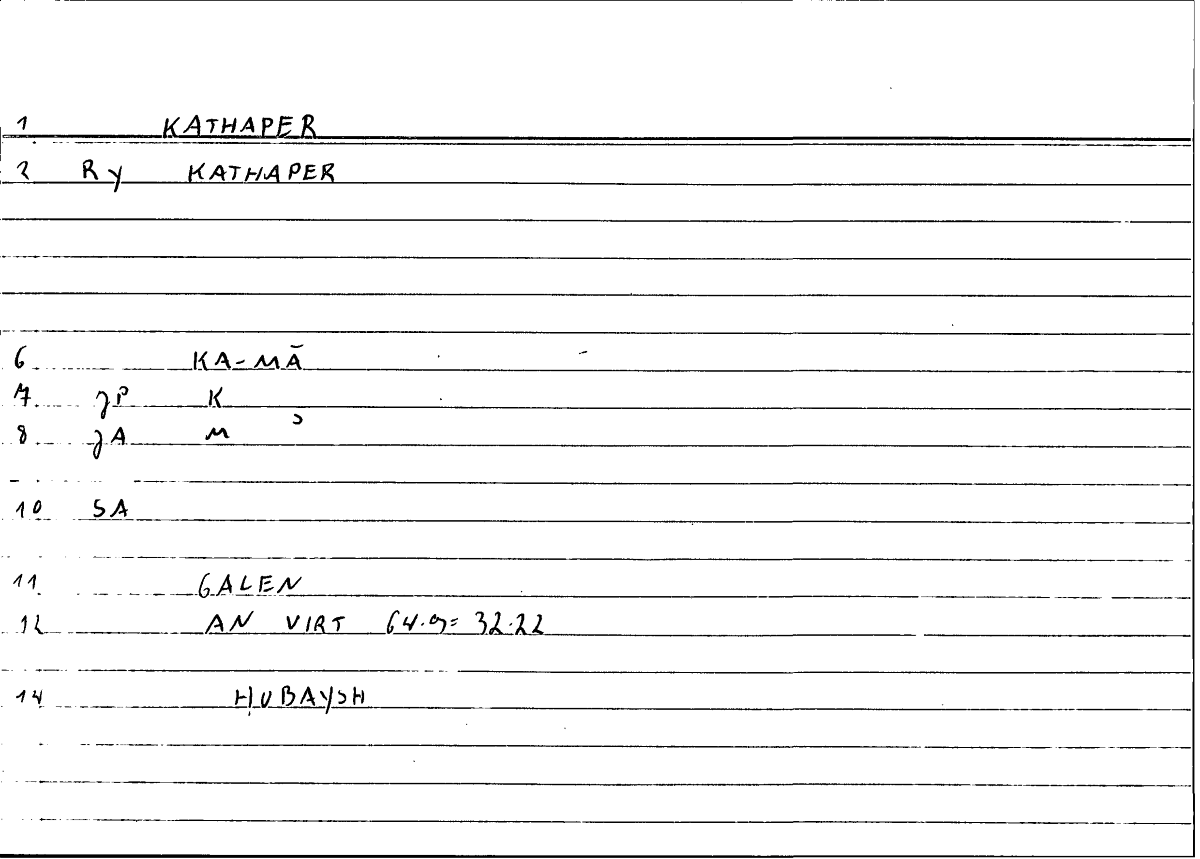 1 KATHAPER
2 Ry KATHAPER
6 KA-MĀ
7 JP K
8 JA M
10 SA
11 GALEN
12 AN VIRT 64.9= 32.22
14 ḤUBAYSH